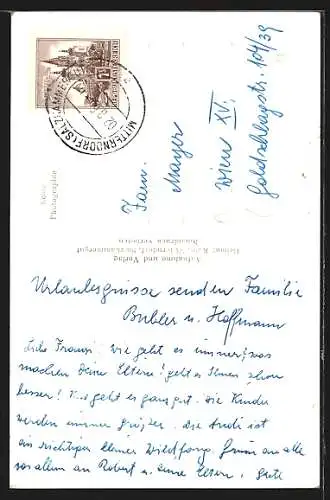 MITTERNDORF (SALZKAMMERGUT)
REPUBLIK ÖSTERREICH
Fam.
Mayer
Wien XV.
Goldschlagstr. 104/39
Photographie
Aufnahme und Verlag
Mitterndorf, Steir. Salzkammergut
Nachdruck verboten
Urlaubsgrüsse senden Familie
Bubler u. Hoffmann
Liebe Franzi! wie geht es immer, was
machen Deine Eltern? geht es Ihnen schon
besser! Uns geht es ganz gut. Die Kinder
werden immer größer. die Andi ist
ein richtiger kleiner Wildfang. Grüsse an alle
vor allem an Robert u. Deine Eltern.